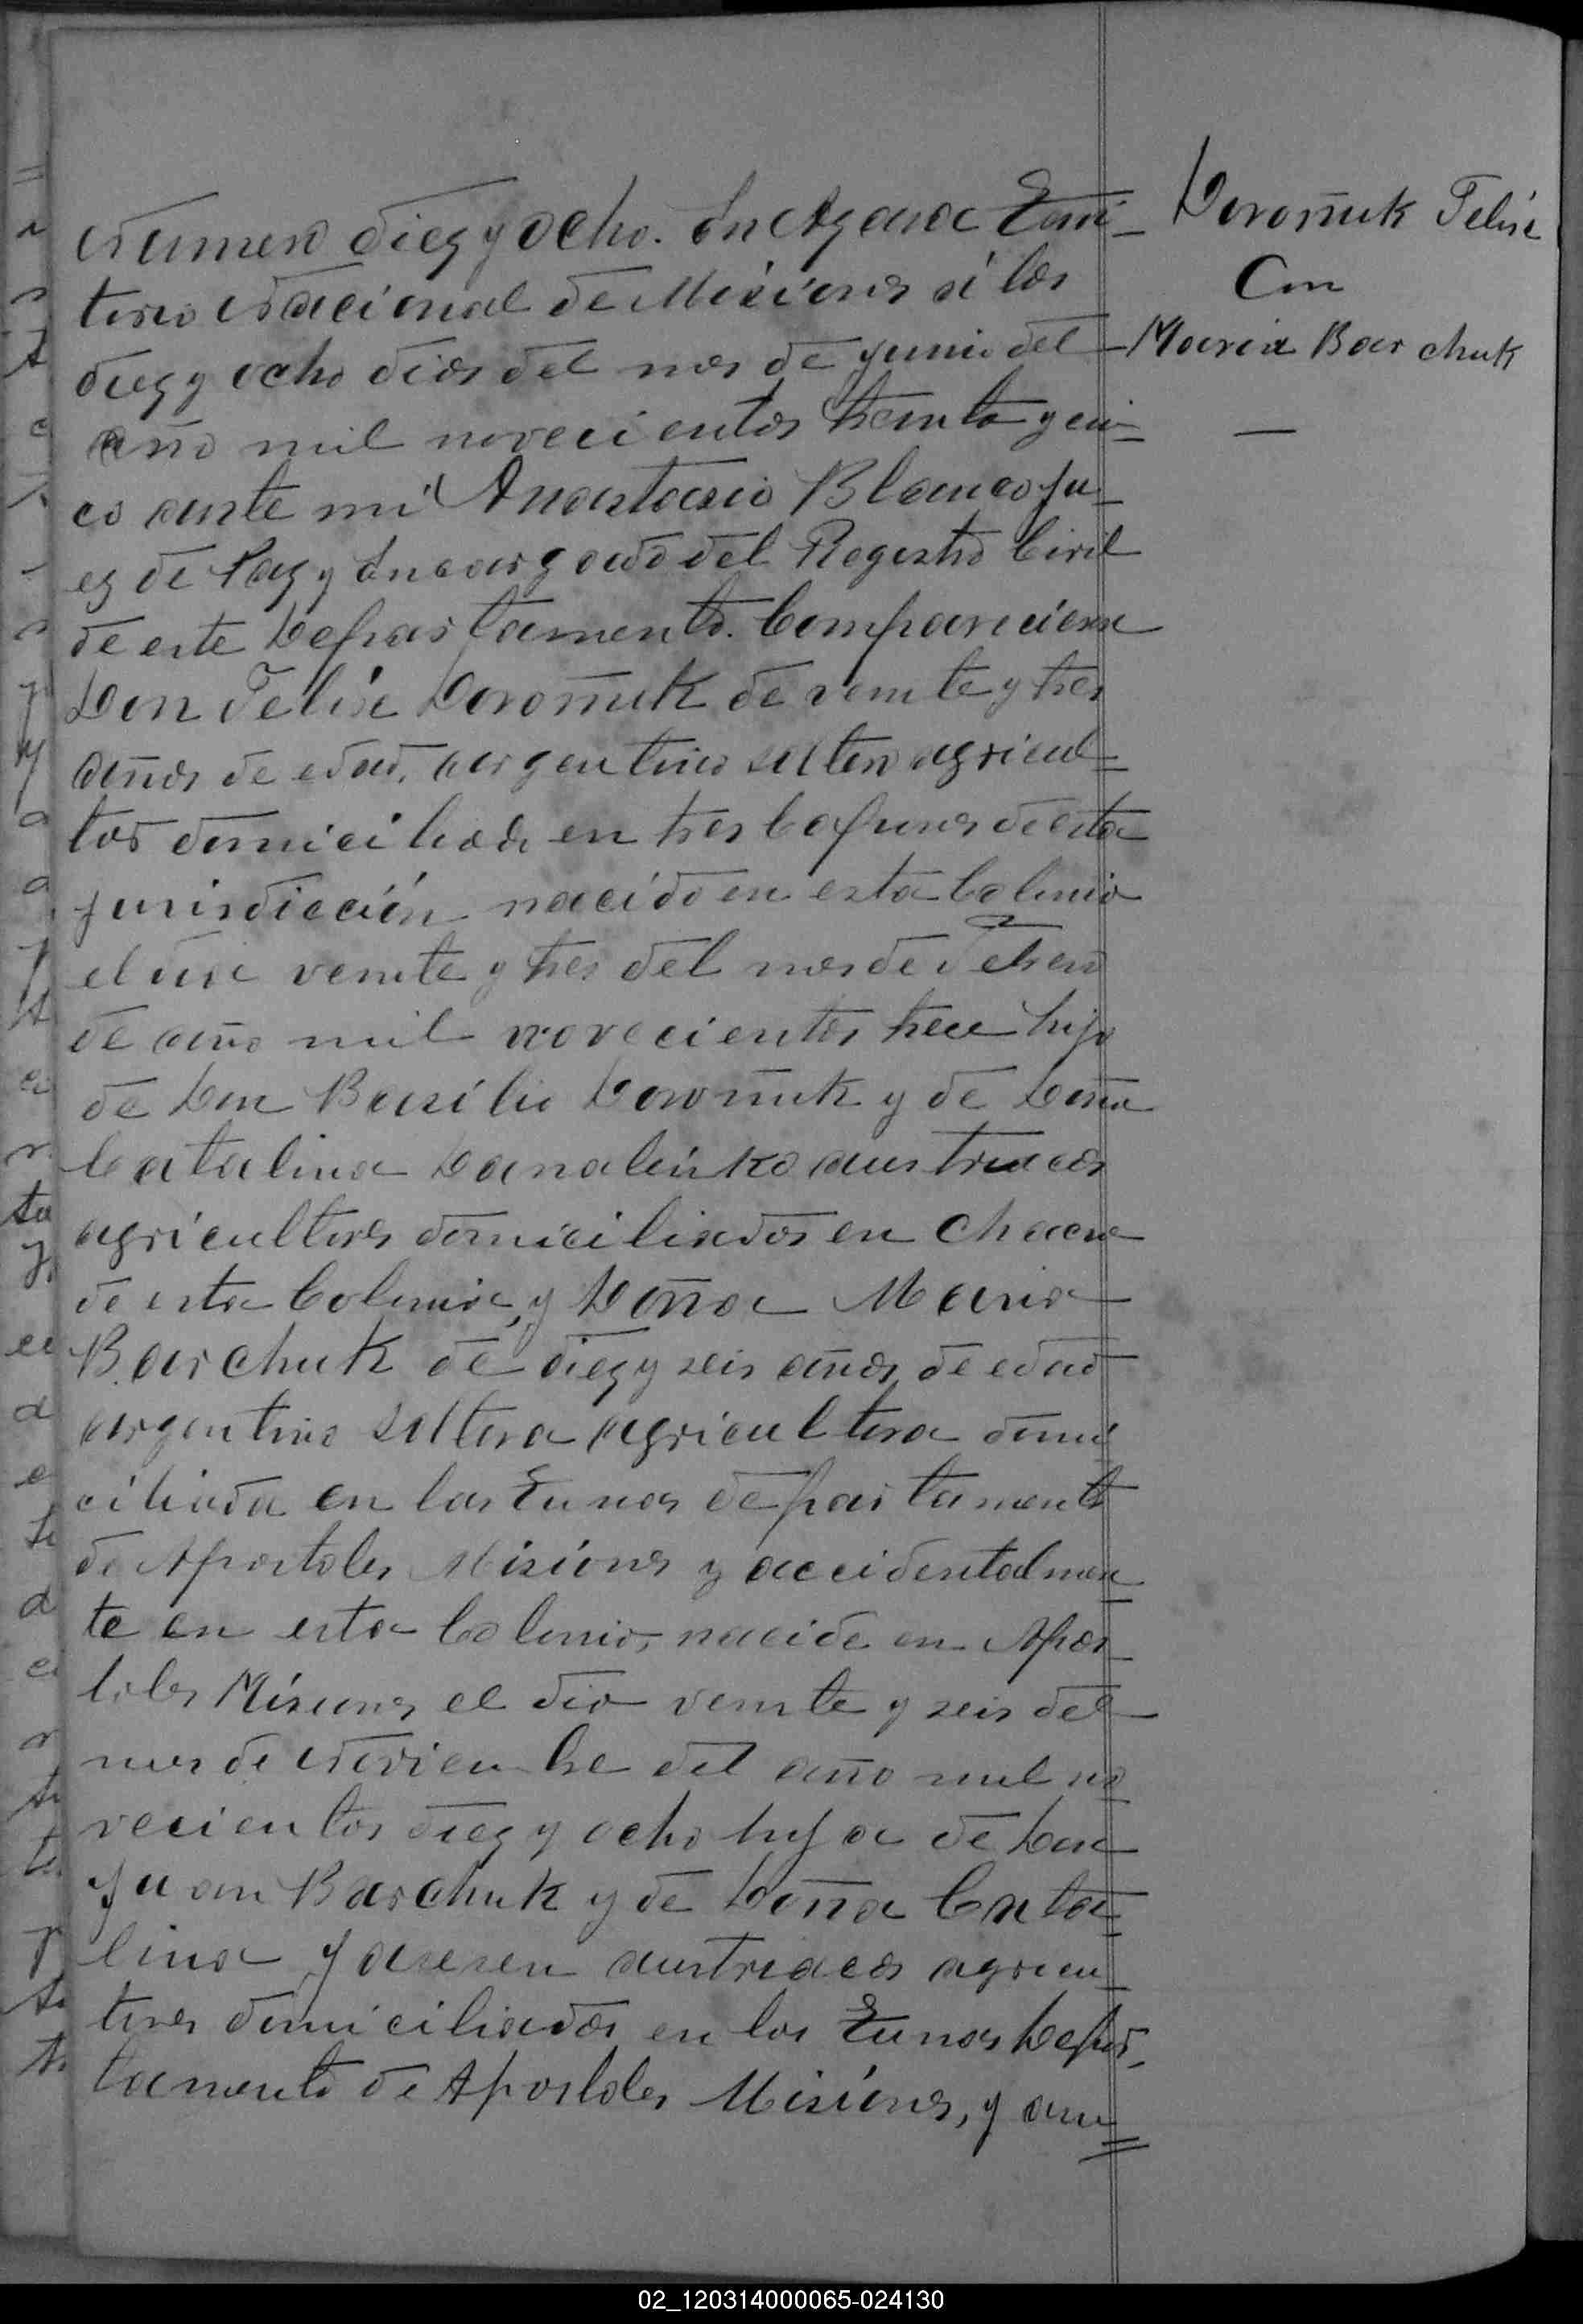 Numero diez y ocho. En Azara Terri-
torio Nacional de Misiones a los
diez y ocho dias del mes de Junio del
año mil novecientos treinta y cin-
co ante mi Anastacio Blanco Ju-
ez de Paz y Encargado del Registro Civil
de este Departamento. Comparecieron
Don Felix Doroñuk de veinte y tres
años de edad, argentino soltero agricul-
tor domiciliado en tres Capones de esta
jurisdicción nacido en esta Colonia
el dia veinte y tres del mes de Febrero
de año mil novecientos trece hijo
de Don Basilio Doroñuk y de Doña
Catalina Danaliuko austriacos
agricultores domiciliados en Chacra
de esta Colonia, y Doña Maria
Barchuk de diez y seis años de edad
argentina soltera agricultora domi
ciliada en las Tunas departamento
de Apostoles Misiones y accidentalmen
te en esta Colonia, nacida en Apos-
toles Misiones el dia veinte y seis del
mes de Noviembre del año mil no
vecientos diez y ocho hija de Don
Juan Barchuk y de Doña Cata
lina austriacos agricul
tores domiciliados en las Tunas Depar-
tamento de Apostoles Misiones, y am
Doroñuk Felix
Con
Maria Barchuk
—
02_120314000065-024130